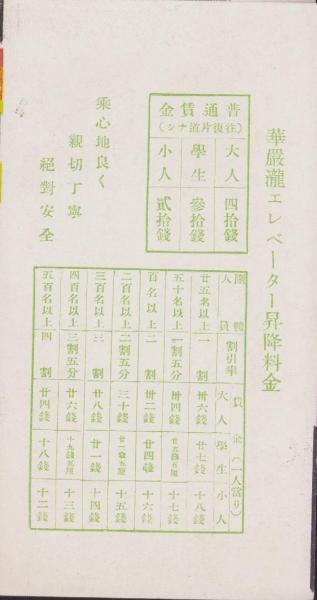 華嚴瀧エレベーター昇降料金
普通賃金
（往復片道ナシ）
大人 四拾錢
學生 參拾錢
小人 貳拾錢
乘心地良く
親切丁寧
絕對安全
團體人員 割引率 賃金（一人當リ） 大人 學生 小人
廿五名以上 一割 卅六錢 廿七錢 十八錢
五十名以上 一割五分 卅四錢 廿五錢五厘 十七錢
百名以上 二割 卅二錢 廿四錢 十六錢
二百名以上 二割五分 三十錢 廿二錢五厘 十五錢
三百名以上 三割 廿八錢 廿一錢 十四錢
四百名以上 三割五分 廿六錢 十九錢五厘 十三錢
五百名以上 四割 廿四錢 十八錢 十二錢